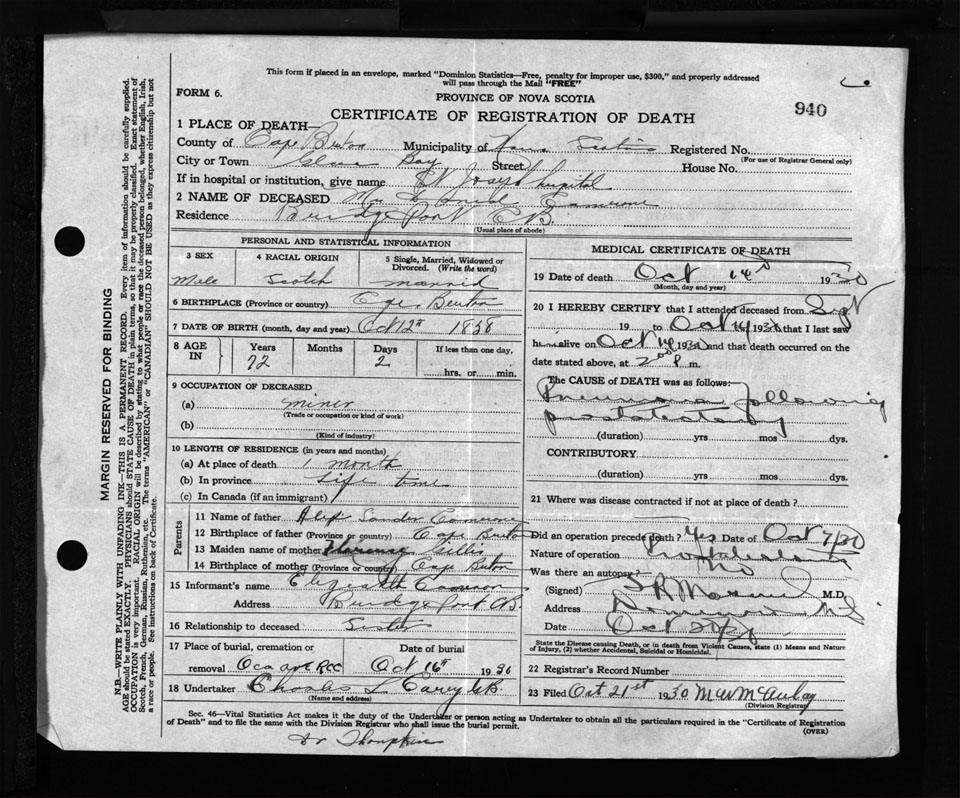 This form if placed in an envelope, marked "Dominion Statistics—Free, penalty for improper use, $300," and properly addressed
will pass through the Mail "FREE"
FORM 6.
PROVINCE OF NOVA SCOTIA
940
CERTIFICATE OF REGISTRATION OF DEATH
1 PLACE OF DEATH
County of Cape Breton Municipality of Nova Scotia Registered No.
(For use of Registrar General only)
City or Town Glace Bay Street House No.
If in hospital or institution, give name St Joseph hospital
2 NAME OF DECEASED
Residence Bridge Port C.B.
(Usual place of abode)
PERSONAL AND STATISTICAL INFORMATION
3 SEX 4 RACIAL ORIGIN 5 Single, Married, Widowed or Divorced. (Write the word)
Male Scotch Married
6 BIRTHPLACE (Province or country) Cape Breton
7 DATE OF BIRTH (month, day and year) Oct 12th 1858
8 AGE IN Years Months Days If less than one day,
72 2 hrs. or min.
9 OCCUPATION OF DECEASED
(a) miner
(Trade of occupation or kind of work)
(b)
(Kind of industry)
10 LENGTH OF RESIDENCE (in years and months)
(a) At place of death 1 month
(b) In province Life time
(c) In Canada (if an immigrant)
Parents
11 Name of father Alex Sander Cameron
12 Birthplace of father (Province or country) Cape Breton
13 Maiden name of mother Florence Gillis
14 Birthplace of mother (Province or country) Cape Breton
15 Informant's name Elizabeth Cameron
Address Bridge Port C.B.
16 Relationship to deceased Sister
17 Place of burial, cremation or removal Date of burial
Oct 16th 1930
18 Undertaker Charles L Carey
(Name and address)
MEDICAL CERTIFICATE OF DEATH
19 Date of death Oct 14 1930
(Month, day and year)
20 I HEREBY CERTIFY that I attended deceased from Sept
19 to Oct 14 1930 that I last saw
him alive on Oct 14 1930 and that death occurred on the
date stated above, at 2 P m.
The CAUSE of DEATH was as follows:
Pneumonia following
prostatectomy
(duration) yrs mos dys.
CONTRIBUTORY
(duration) yrs. mos. dys.
21 Where was disease contracted if not at place of death?
Did an operation precede death? Yes Date of Oct 7/30
Nature of operation
Was there an autopsy? No
(Signed) M.D.
Address Dominion
Date Oct 20/30
State the Disease causing Death, or in death from Violent Causes, state (1) Means and Nature
of Injury, (2) whether Accidental, Suicidal or Homicidal.
22 Registrar's Record Number
23 Filed Oct 21st 1930 M W McAulay
(Division Registrar)
Sec. 46—Vital Statistics Act makes it the duty of the Undertaker or person acting as Undertaker to obtain all the particulars required in the "Certificate of Registration
of Death" and to file the same with the Division Registrar who shall issue the burial permit.
(OVER)
Dr Thompkin
MARGIN RESERVED FOR BINDING
N.B.—WRITE PLAINLY WITH UNFADING INK—THIS IS A PERMANENT RECORD. Every item of information should be carefully supplied.
AGE should be stated EXACTLY. PHYSICIANS should STATE CAUSE OF DEATH in plain terms, so that it may be properly classified. Exact statement of
OCCUPATION is very important. RACIAL ORIGIN will be described by stating to what people or race the deceased person belonged, whether English, Irish,
Scotch, French, German, Russian, Ruthenian, etc. The terms "AMERICAN" or "CANADIAN" SHOULD NOT BE USED as they express citizenship but not
a race or people. See instructions on back of Certificate.